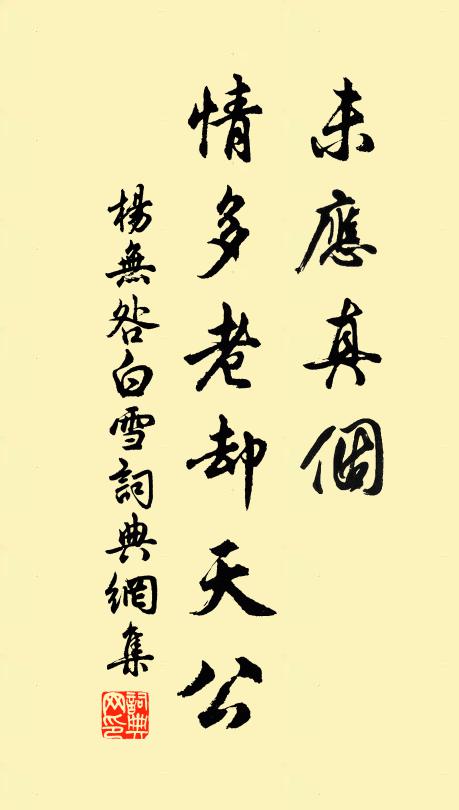 未應真個
情多老却天公
楊無咎白雪詞典網集
詞典网印